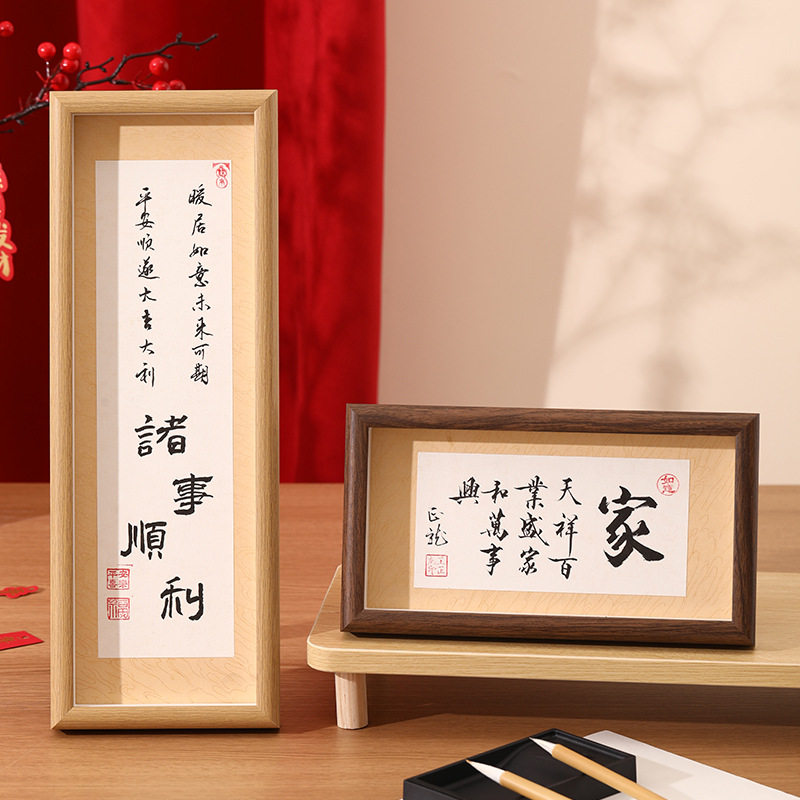 暖居如意未来可期
平安顺遂大吉大利
諸事順利
家
天祥百
業盛家
和萬事
興
正龍
如意